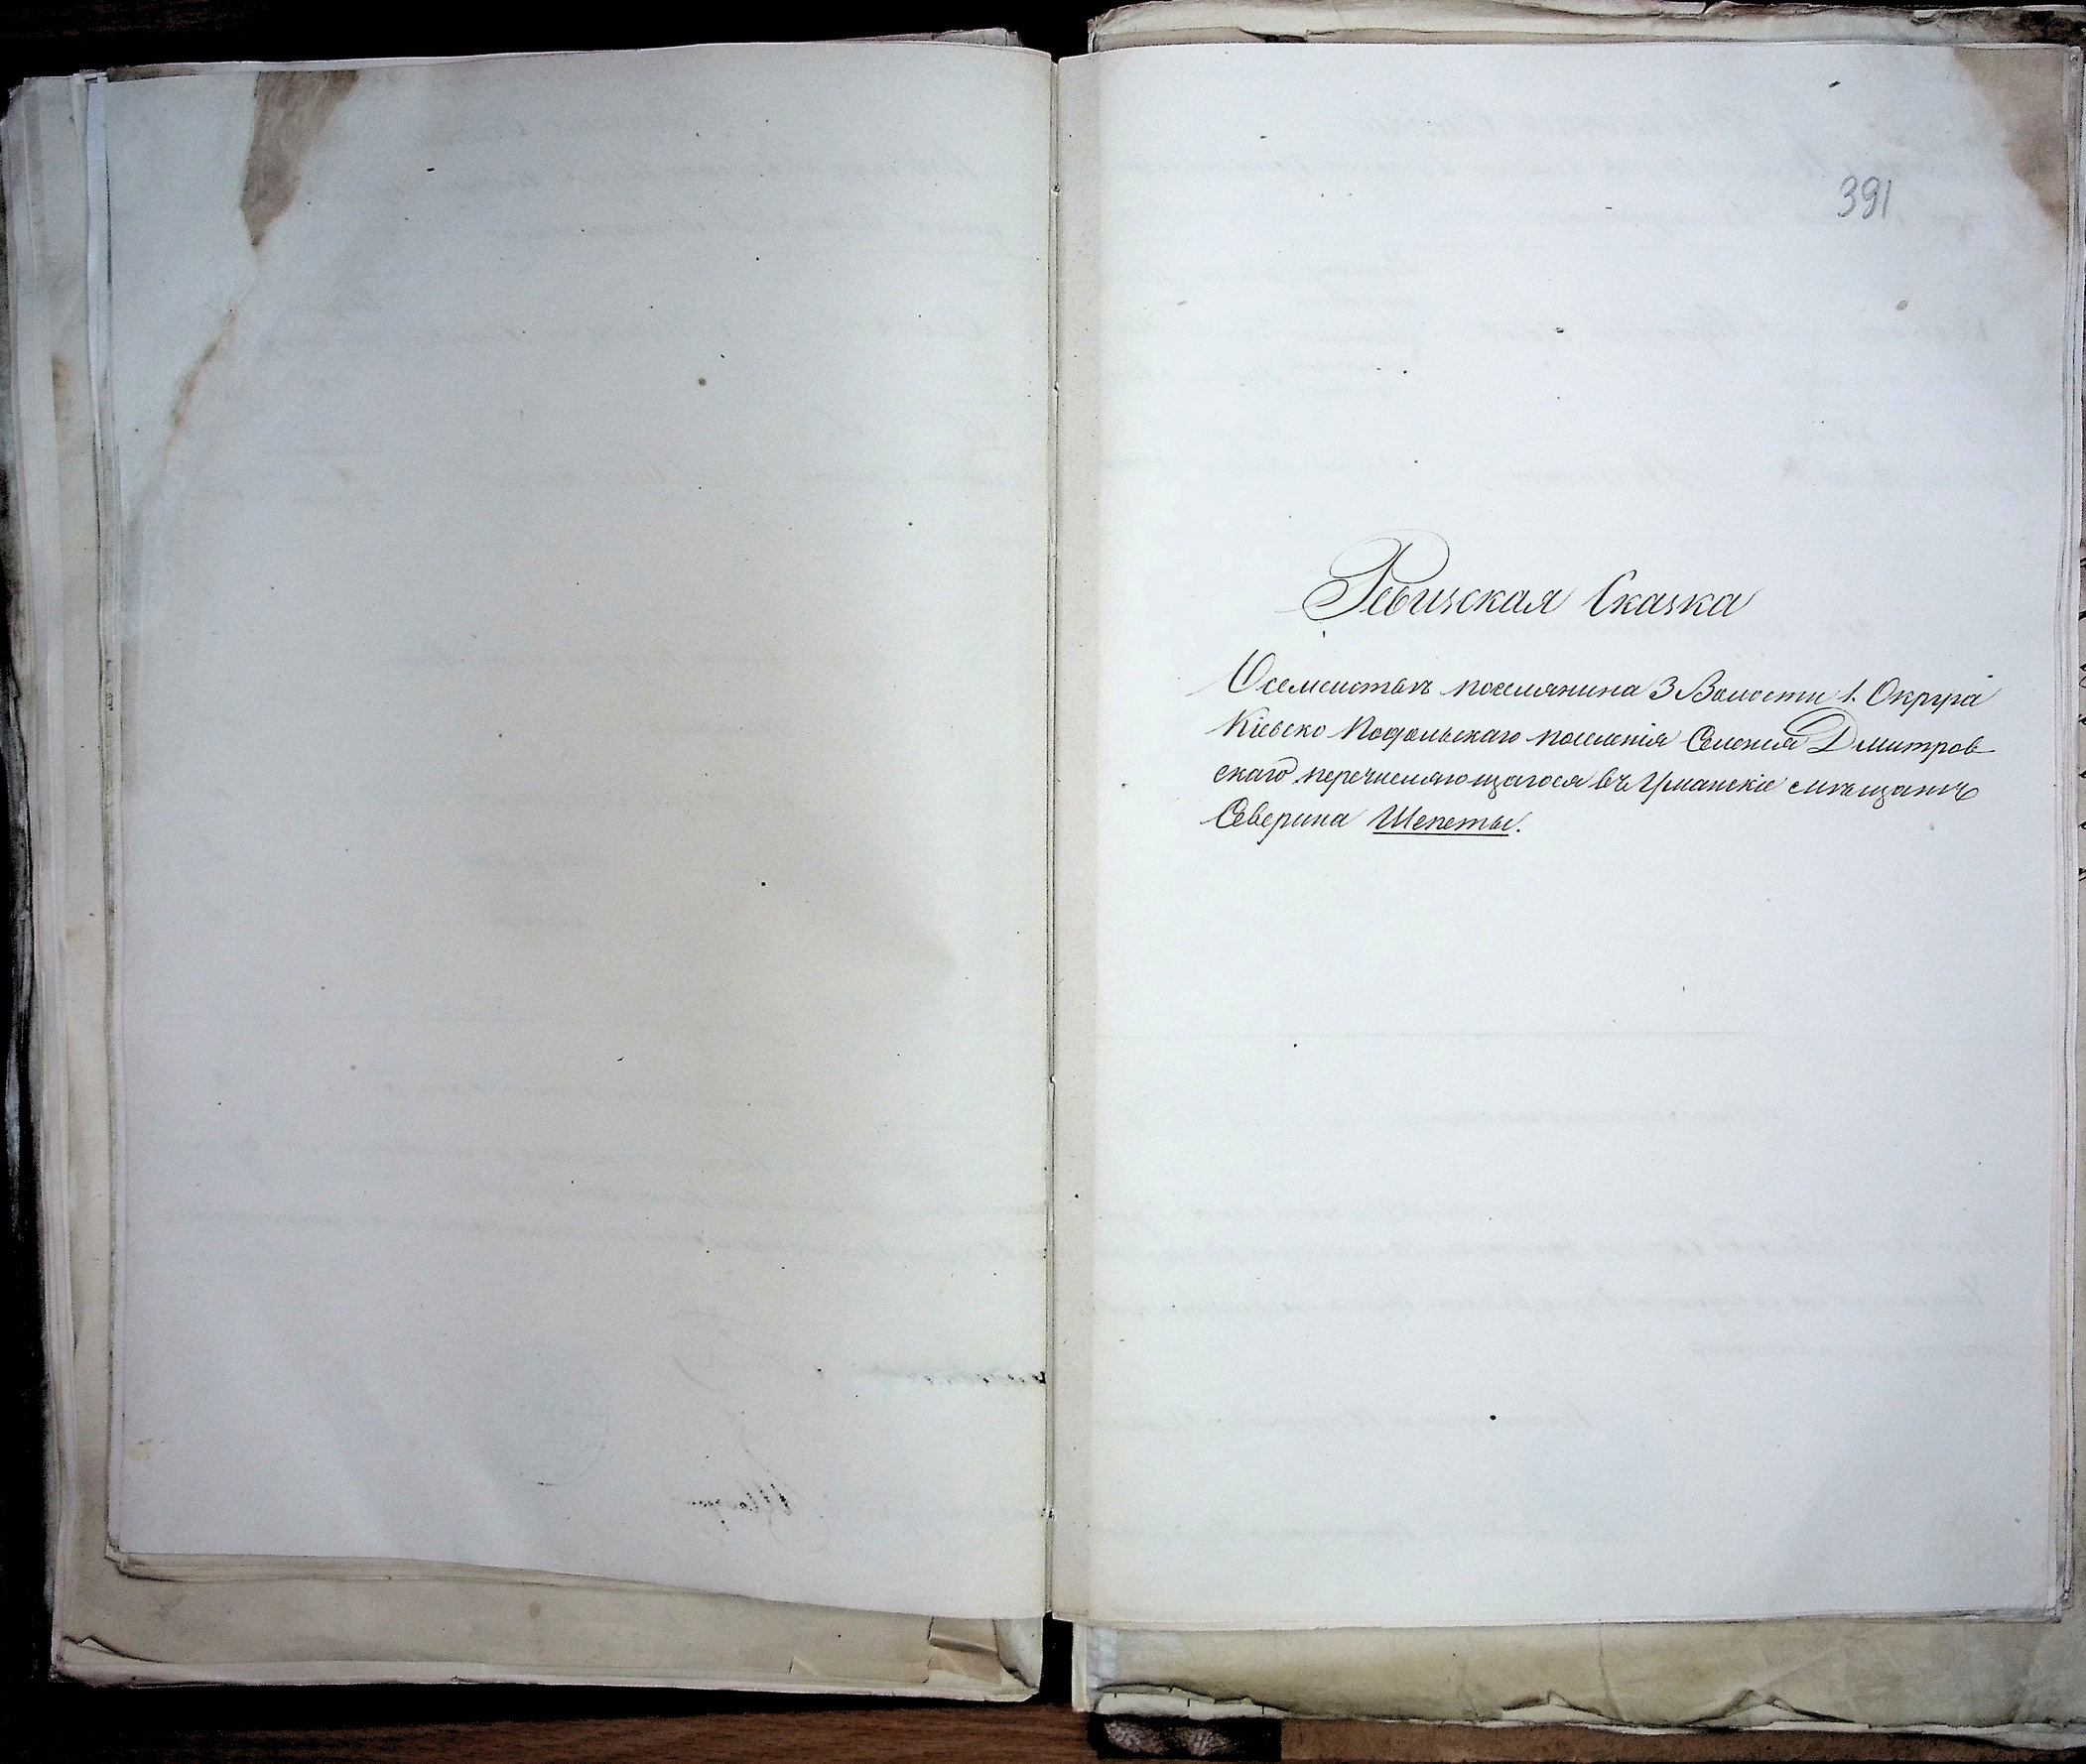 391
Ревизская Сказка
О семействѣ поселянина 3 Волости 1. Округа
Кіевско Подольскаго поселенія Селенія Дмитров
скаго перечисляющагося въ Уманскіе мѣщане
Северина Шепеты.